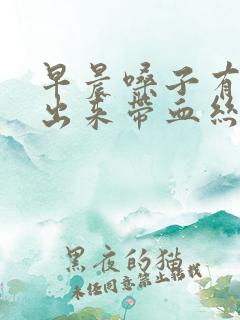 早晨嗓子有
出来带血丝
黑夜的猫
未经同意禁止转载